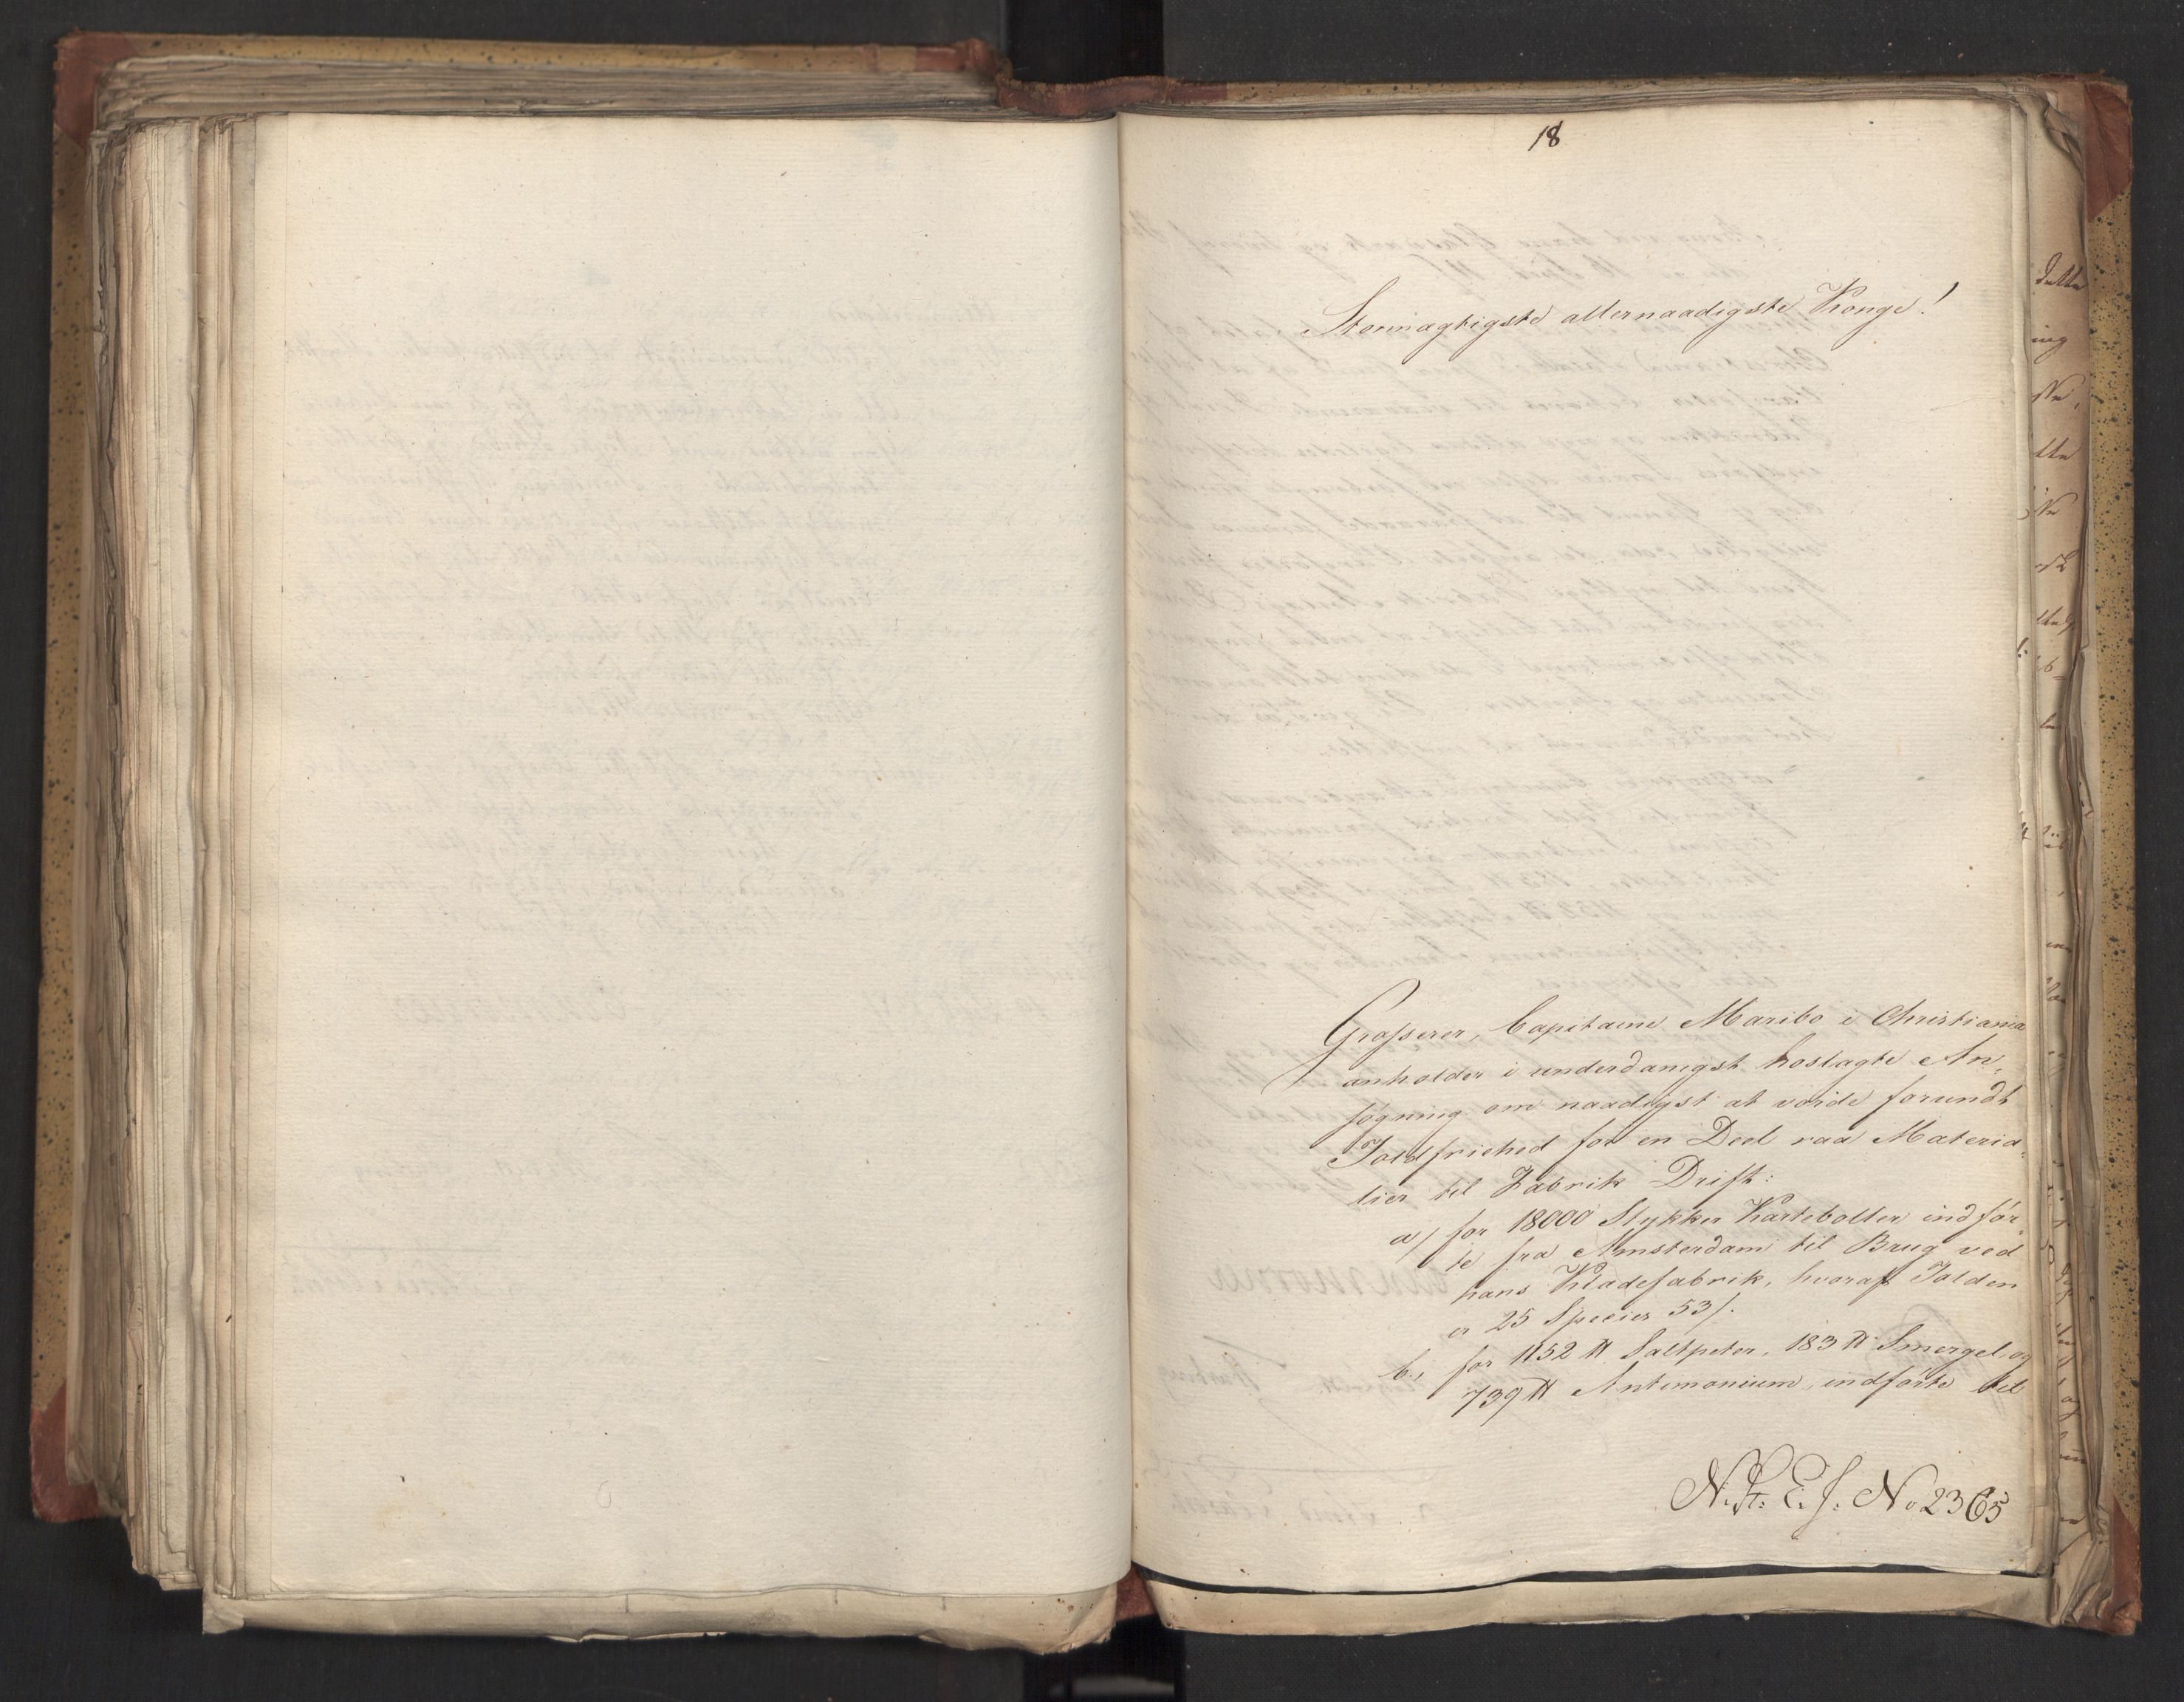 18
Stormægtigste allernaadigste Konge!
Grosserer, Capitaine Maribo i Christiania
anholder i underdanigst hoslagte An-
søgning om naadigst at vorde forundt
Toldfriehed for en Deel raa Materia-
lier til Fabrik Drift:
a) for 18000 Stykker Karteboller indfør-
te fra Amsterdam til Brug ved
hans Klædefabrik, hvoraf Tolden
er 25 Species 53 s.
b., for 1152 ℔ Saltpeter, 183 ℔ Smergel og
739 ℔ Antimonium, indførte til
N. St. E. J. No 2365